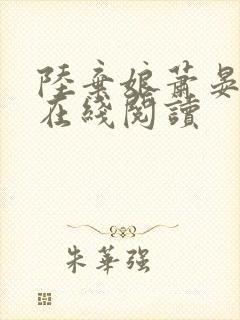 陸棄娘萧晏
在綫閱讀
朱華强